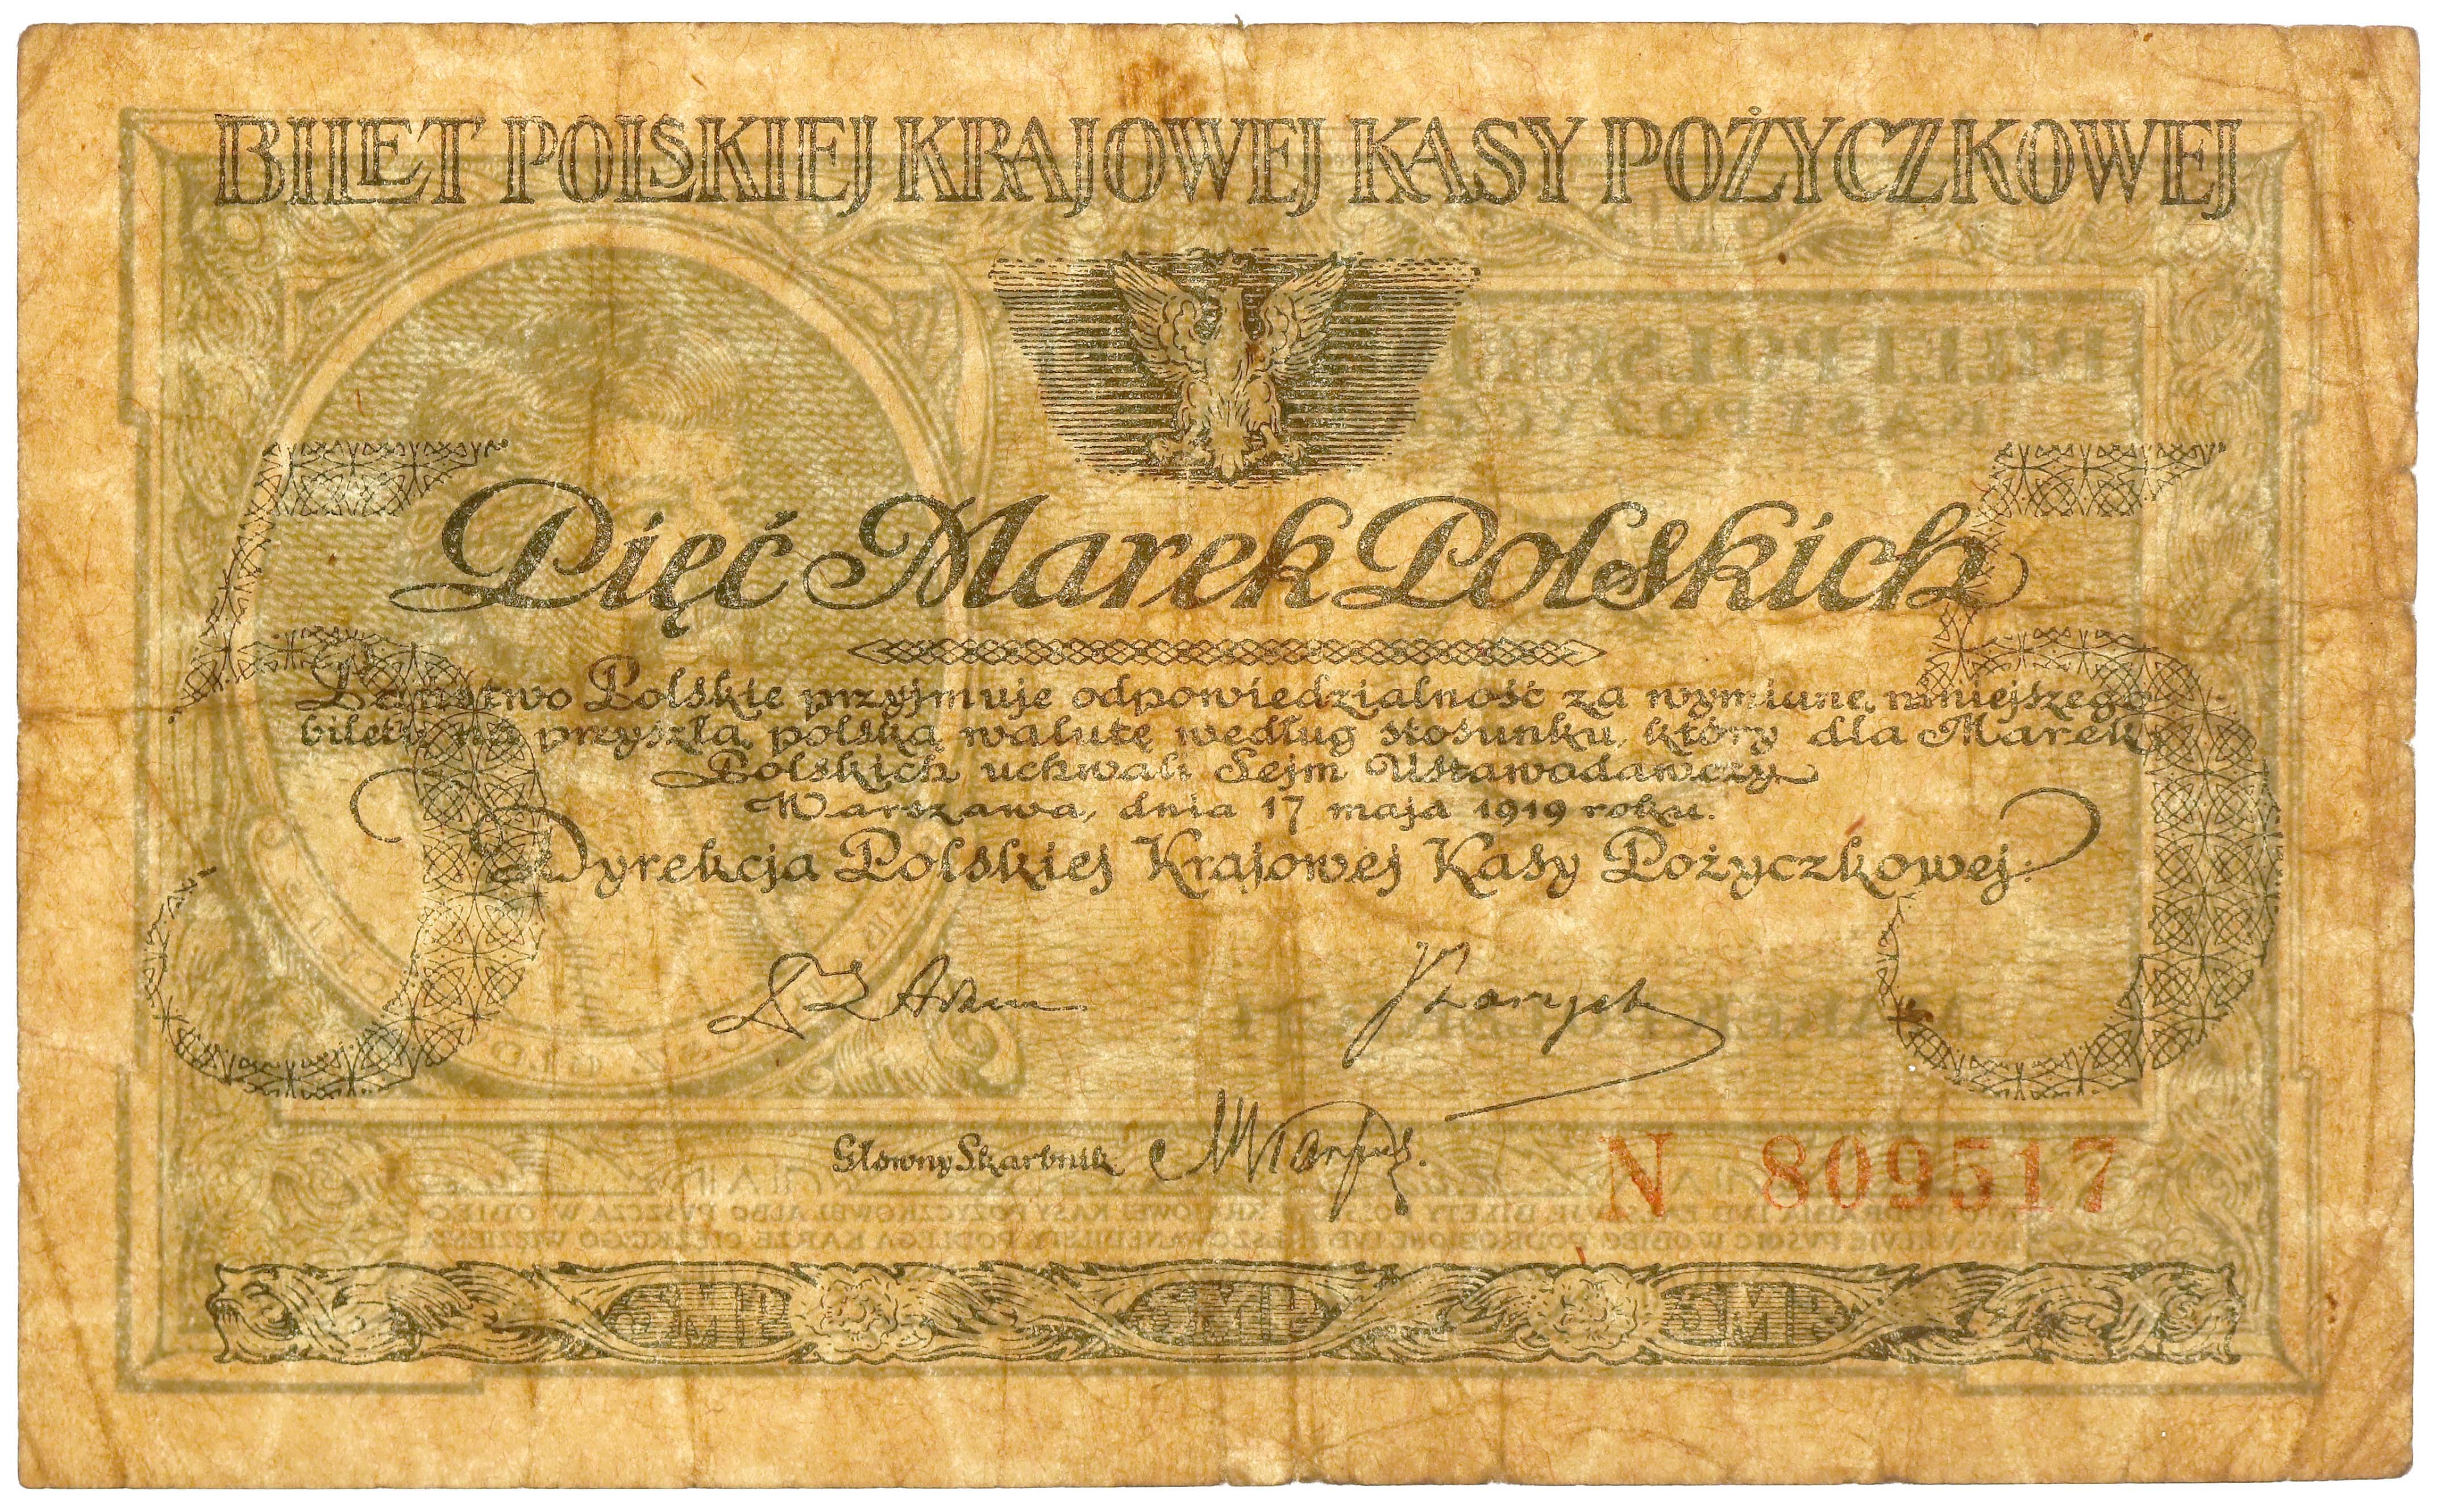 BILET POLSKIEJ KRAJOWEJ KASY POŻYCZKOWEJ
5 5
Pięć Marek Polskich
Państwo Polskie przyjmuje odpowiedzialność za wymianę niniejszego
biletu na przyszłą polską walutę według stosunku, który dla Marek
Polskich uchwali Sejm Ustawodawczy
Warszawa, dnia 17 maja 1919 roku.
Dyrekcja Polskiej Krajowej Kasy Pożyczkowej:
Główny Skarbnik
N 809517
5MP 5MP 5MP